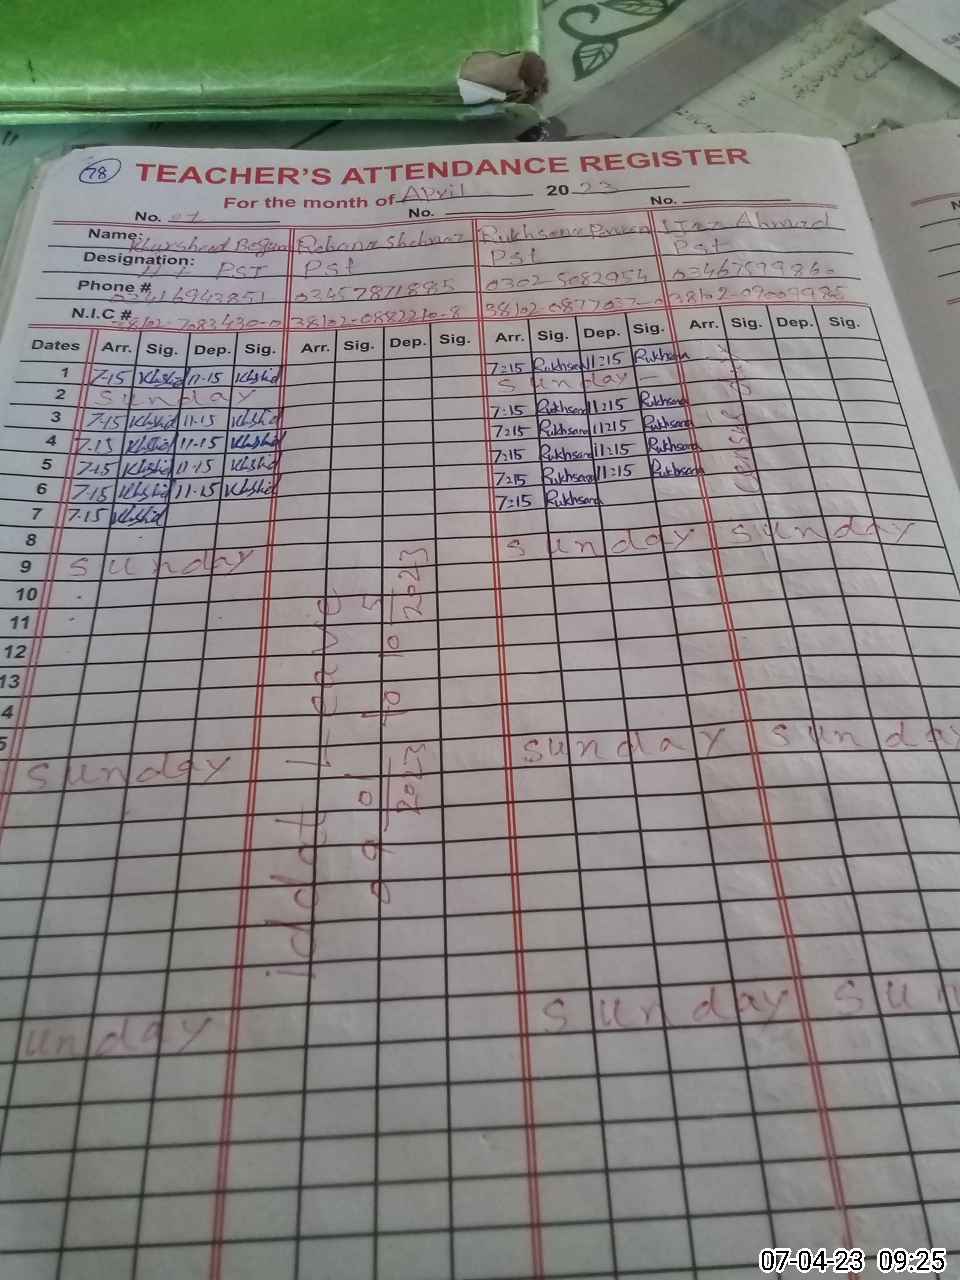 78
TEACHER'S ATTENDANCE REGISTER
For the month of April 2023
No. 01 No. No.
Name: Khursheed Begum Rehana Shehnaz Rukhsana Parveen Ijaz Ahmad
Designation: PST Pst Pst Pst
Phone # 03416943851 03457871885 0302 5082954
N.I.C #
Dates Arr. Sig. Dep. Sig. Arr. Sig. Dep. Sig. Arr. Sig. Dep. Sig. Arr. Sig. Dep. Sig.
1 7-15 Khshid 11-15 Khshid 7:15 Rukhsana 11:15 Rukhsana
2 Sunday Sunday
3 7-15 Khshid 11-15 Khshid 7:15 Rukhsana 11:15 Rukhsana
4 7-15 Khshid 11-15 Khshid 7:15 Rukhsana 11:15 Rukhsana
5 7-15 Khshid 11-15 Khshid 7:15 Rukhsana 11:15 Rukhsana
6 7-15 Khshid 11-15 Khshid 7:15 Rukhsana 11:15 Rukhsana
7 7-15 Khshid 7:15 Rukhsana
8
9 Sunday Sunday Sunday
10
11
12
13
4
5
Sunday Sunday Sunday
unday Sunday Sun
iddat Leave
09-01-2023 to 10-5-2023
07-04-23 09:25